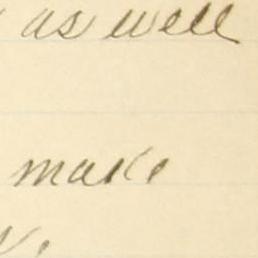 as well
make